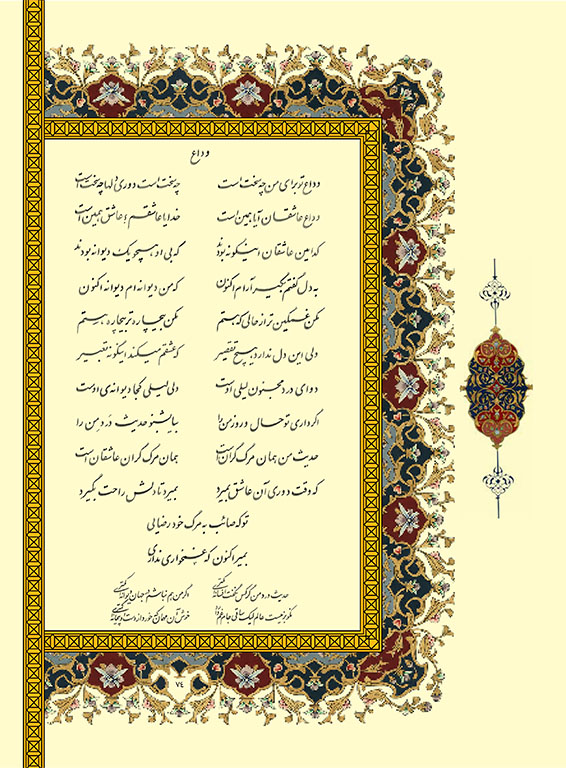 وداع
وداع تو برای من چه سخت است چه سخت است دوری دلها چه سخت است
وداع عاشقان آیا همین است خدایا عاشقم؛ عاشق همین است
کدامین عاشقان اینگونه بودند که بی او هیچ یک دیوانه بودند
به دل گفتم بگیر آرام اکنون که من دیوانه ام دیوانه اکنون
مکن غمگین تر از حالی که هستم مکن بیچاره تر بیچاره هستم
ولی این دل ندارد هیچ تقصیر که عشقم میکند اینگونه تعبیر
دوای درد مجنون لیلی اوست ولی لیلی کجا دیوانه‌ی اوست
اگر داری تو حال و روز من را بیا بشنو حدیث درد من را
حدیث من همان مرگ گران است همان مرگ گران عاشقان است
که وقت دوری آن عاشق بمیرد بمیرد تا دلش راحت بگیرد
تو که صائب به مرگ خود رضایی
بمیر اکنون که غمخواری نداری
حدیث درد من گر کس نگفت افسانه کمتر و گر من هم نباشم در جهان دیوانه کمتر
۷۴